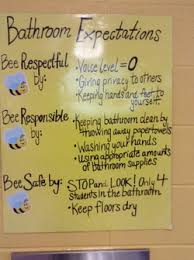 Bathroom Expectations
Bee Respectful by:
• Voice level = 0
• Giving privacy to others
• Keeping hands and feet to yourself.
Bee Responsible by:
• Keeping bathroom clean by throwing away papertowels
• Washing your hands
• Using appropriate amounts of bathroom supplies
Bee Safe by:
• STOP and LOOK! Only 4 students in the bathroom
• Keep floors dry